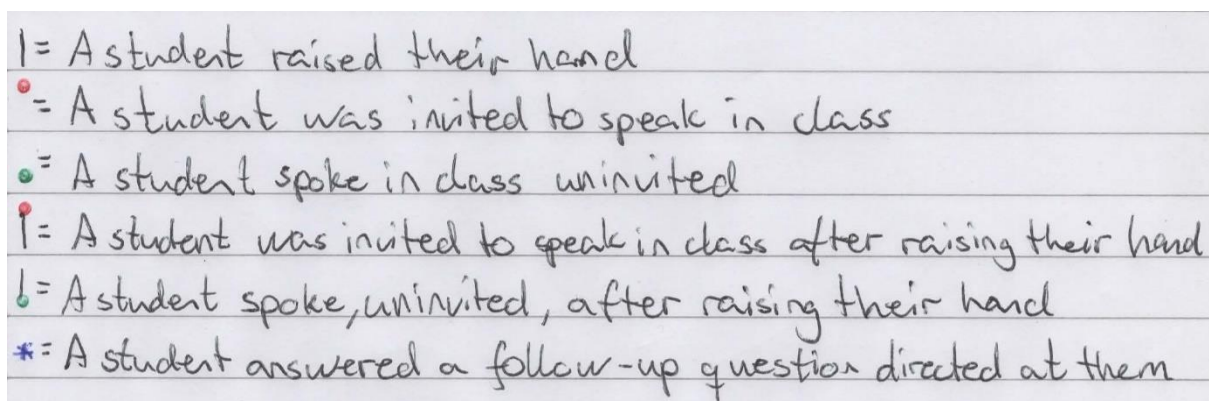 | = A student raised their hand
= A student was invited to speak in class
= A student spoke in class uninvited
| = A student was invited to speak in class after raising their hand
| = A student spoke, uninvited, after raising their hand
* = A student answered a follow-up question directed at them